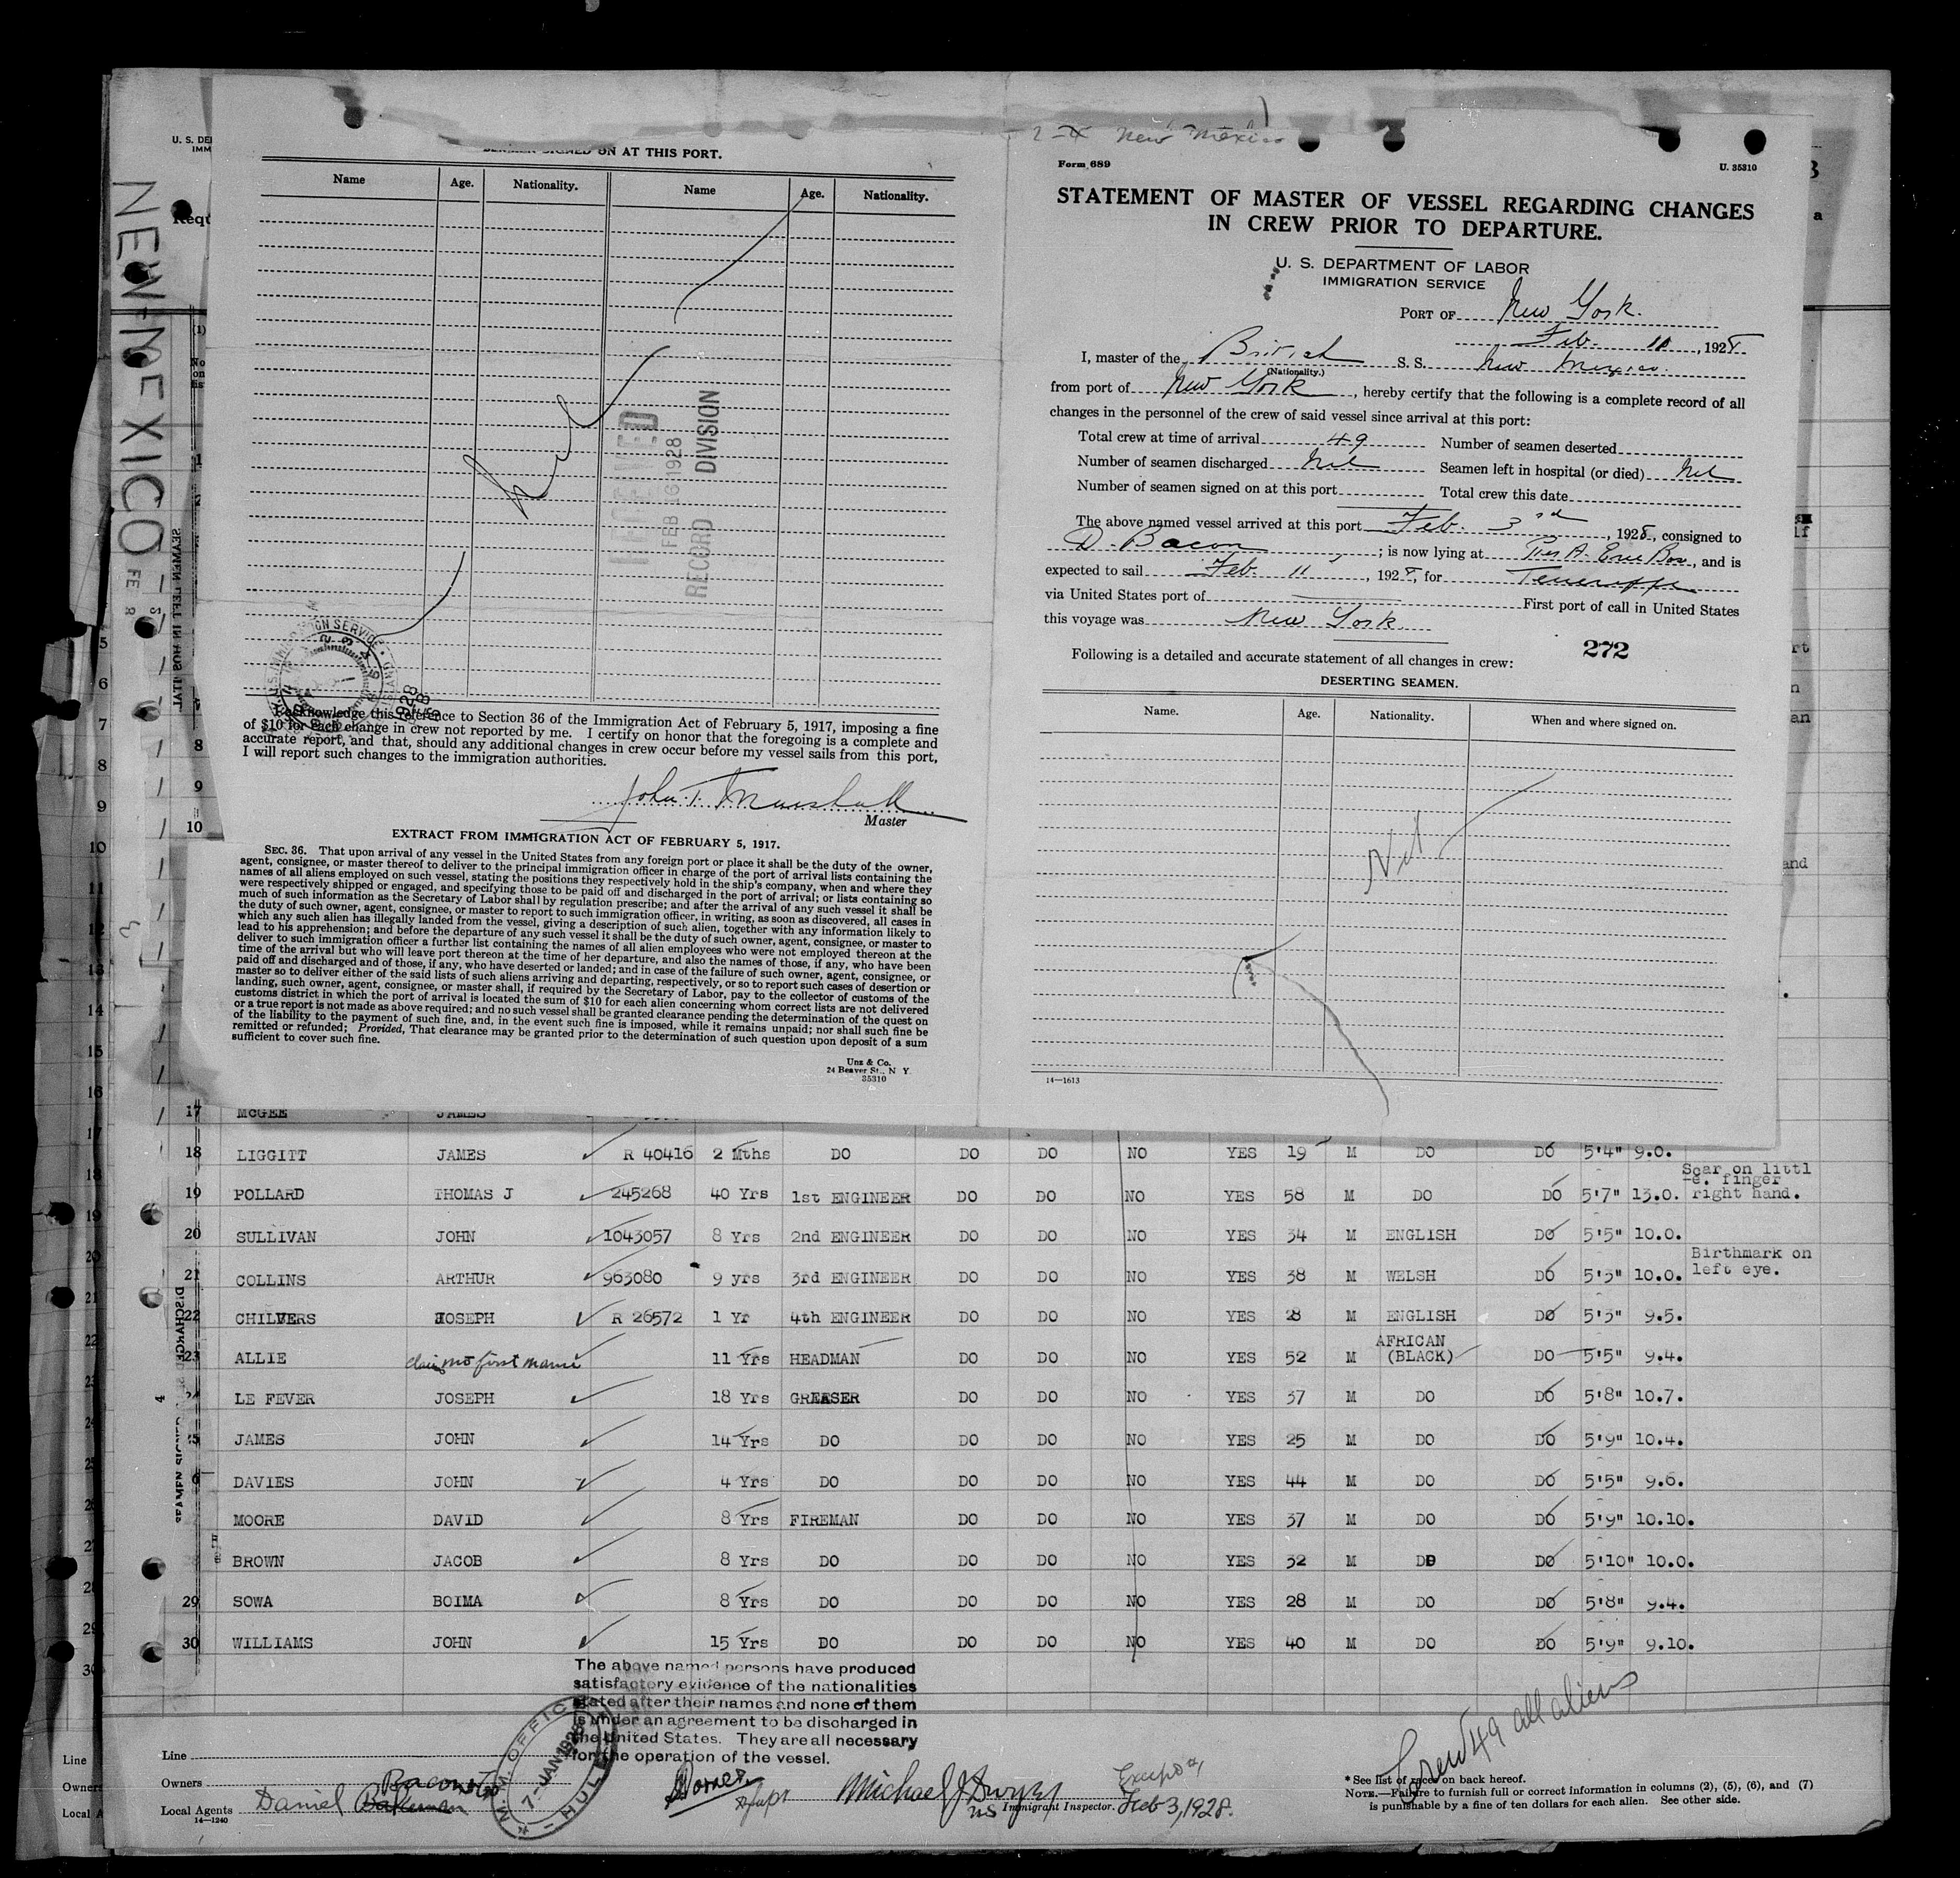 U. S. DE
IMM
NEW-MEXICO
FE 8
SEAMEN LEFT IN HOSPITAL
SEAMEN SIGNED ON AT THIS PORT.
Name Age. Nationality. Name Age. Nationality.
FEB 6 1928
RECORD DIVISION
1928
I acknowledge this reference to Section 36 of the Immigration Act of February 5, 1917, imposing a fine
of $10 for each change in crew not reported by me. I certify on honor that the foregoing is a complete and
accurate report, and that, should any additional changes in crew occur before my vessel sails from this port,
I will report such changes to the immigration authorities.
John T. Marshall
Master
EXTRACT FROM IMMIGRATION ACT OF FEBRUARY 5, 1917.
SEC. 36. That upon arrival of any vessel in the United States from any foreign port or place it shall be the duty of the owner,
agent, consignee, or master thereof to deliver to the principal immigration officer in charge of the port of arrival lists containing the
names of all aliens employed on such vessel, stating the positions they respectively hold in the ship's company, when and where they
were respectively shipped or engaged, and specifying those to be paid off and discharged in the port of arrival; or lists containing so
much of such information as the Secretary of Labor shall by regulation prescribe; and after the arrival of any such vessel it shall be
the duty of such owner, agent, consignee, or master to report to such immigration officer, in writing, as soon as discovered, all cases in
which any such alien has illegally landed from the vessel, giving a description of such alien, together with any information likely to
lead to his apprehension; and before the departure of any such vessel it shall be the duty of such owner, agent, consignee, or master to
deliver to such immigration officer a further list containing the names of all alien employees who were not employed thereon at the
time of the arrival but who will leave port thereon at the time of her departure, and also the names of those, if any, who have been
paid off and discharged and of those, if any, who have deserted or landed; and in case of the failure of such owner, agent, consignee, or
master so to deliver either of the said lists of such aliens arriving and departing, respectively, or so to report such cases of desertion or
landing, such owner, agent, consignee, or master shall, if required by the Secretary of Labor, pay to the collector of customs of the
customs district in which the port of arrival is located the sum of $10 for each alien concerning whom correct lists are not delivered
or a true report is not made as above required; and no such vessel shall be granted clearance pending the determination of the quest on
of the liability to the payment of such fine, and, in the event such fine is imposed, while it remains unpaid; nor shall such fine be
remitted or refunded; Provided, That clearance may be granted prior to the determination of such question upon deposit of a sum
sufficient to cover such fine.
Unz & Co.
24 Beaver St., N Y
35310
New Mexico
Form 689 U. 35310
STATEMENT OF MASTER OF VESSEL REGARDING CHANGES
IN CREW PRIOR TO DEPARTURE.
U. S. DEPARTMENT OF LABOR
IMMIGRATION SERVICE
PORT OF New York.
Feb. 11, 1928
I, master of the British S. S. New Mexico.
(Nationality.)
from port of New York, hereby certify that the following is a complete record of all
changes in the personnel of the crew of said vessel since arrival at this port:
Total crew at time of arrival 49 Number of seamen deserted
Number of seamen discharged Nil Seamen left in hospital (or died) Nil
Number of seamen signed on at this port Total crew this date
The above named vessel arrived at this port Feb. 3rd, 1928, consigned to
D. Bacon; is now lying at Pier A. Erie Bsn, and is
expected to sail Feb. 11, 1928, for Teneriffe
via United States port of First port of call in United States
this voyage was New York.
272
Following is a detailed and accurate statement of all changes in crew:
DESERTING SEAMEN.
Name. Age. Nationality. When and where signed on.
Nil
14—1613
17 MCGEE JAMES
18 LIGGITT JAMES R 40416 2 Mths DO DO DO NO YES 19 M DO DO 5'4" 9.0.
19 POLLARD THOMAS J 245268 40 Yrs 1st ENGINEER DO DO NO YES 58 M DO DO 5'7" 13.0. Scar on littl-e. finger right hand.
20 SULLIVAN JOHN 1043057 8 Yrs 2nd ENGINEER DO DO NO YES 34 M ENGLISH DO 5'5" 10.0.
21 COLLINS ARTHUR 963080 9 yrs 3rd ENGINEER DO DO NO YES 38 M WELSH DO 5'3" 10.0. Birthmark on left eye.
22 CHILVERS JOSEPH R 26572 1 Yr 4th ENGINEER DO DO NO YES 28 M ENGLISH DO 5'3" 9.5.
23 ALLIE claims no first name 11 Yrs HEADMAN DO DO NO YES 52 M AFRICAN (BLACK) DO 5'5" 9.4.
24 LE FEVER JOSEPH 18 Yrs GREASER DO DO NO YES 37 M DO DO 5'8" 10.7.
5 JAMES JOHN 14 Yrs DO DO DO NO YES 25 M DO DO 5'9" 10.4.
6 DAVIES JOHN 4 Yrs DO DO DO NO YES 44 M DO DO 5'5" 9.6.
MOORE DAVID 8 Yrs FIREMAN DO DO NO YES 37 M DO DO 5'9" 10.10.
BROWN JACOB 8 Yrs DO DO DO NO YES 32 M DO DO 5'10" 10.0.
29 SOWA BOIMA 8 Yrs DO DO DO NO YES 28 M DO DO 5'8" 9.4.
30 WILLIAMS JOHN 15 Yrs DO DO DO NO YES 40 M DO DO 5'9" 9.10.
The above named persons have produced
satisfactory evidence of the nationalities
stated after their names and none of them
is under an agreement to be discharged in
the United States. They are all necessary
for the operation of the vessel.
M.M. OFFICE
7-JAN 1928
HULL
Crew 49 all aliens
Line Line
Owners Owners
Local A Local Agents Daniel Bacon
14—1240
Michael J Dwyer
US Immigrant Inspector. Feb 3, 1928.
* See list of races on back hereof.
NOTE.—Failure to furnish full or correct information in columns (2), (5), (6), and (7)
is punishable by a fine of ten dollars for each alien. See other side.